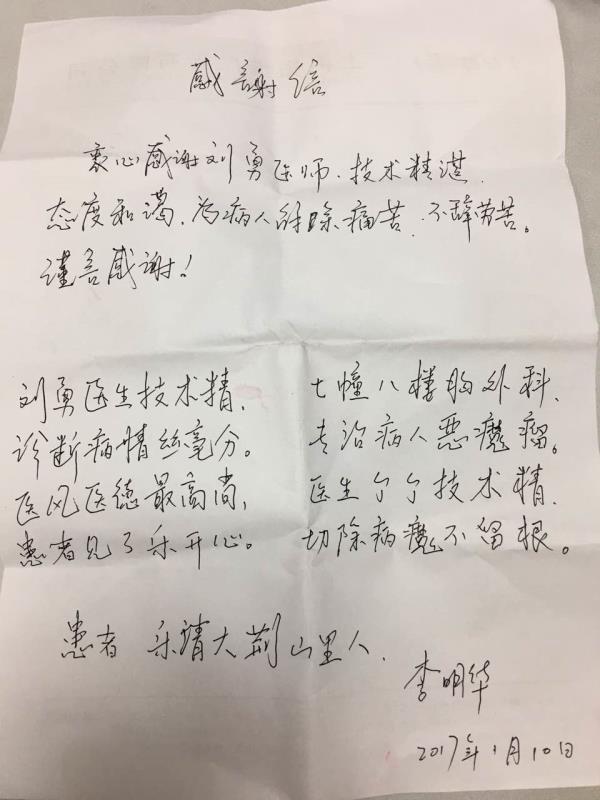 感謝信
衷心感谢刘勇医师、技术精湛、
态度和蔼、为病人解除痛苦、不辞劳苦。
谨善感谢!
刘勇医生技术精、
诊断病情丝毫分。
医风医德最高尚,
患者见了乐开心。
七幢八楼胸外科、
专治病人恶魔瘤。
医生个个技术精、
切除病魔不留根。
患者 乐清大荆山里人、
李明华
2017年1月10日